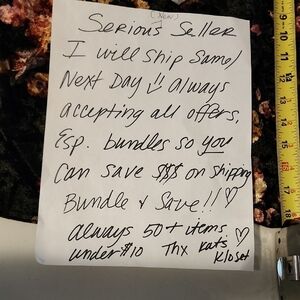 (New)
Serious Seller
I will ship same/
Next Day!! always
accepting all offers,
Esp. bundles so you
Can save $$$ on shipping
Bundle & Save!! ♡
always 50+ items ♡
under $10 Thx Kat's
Kloset
9
10
11
12
13
14
15
16
17
18